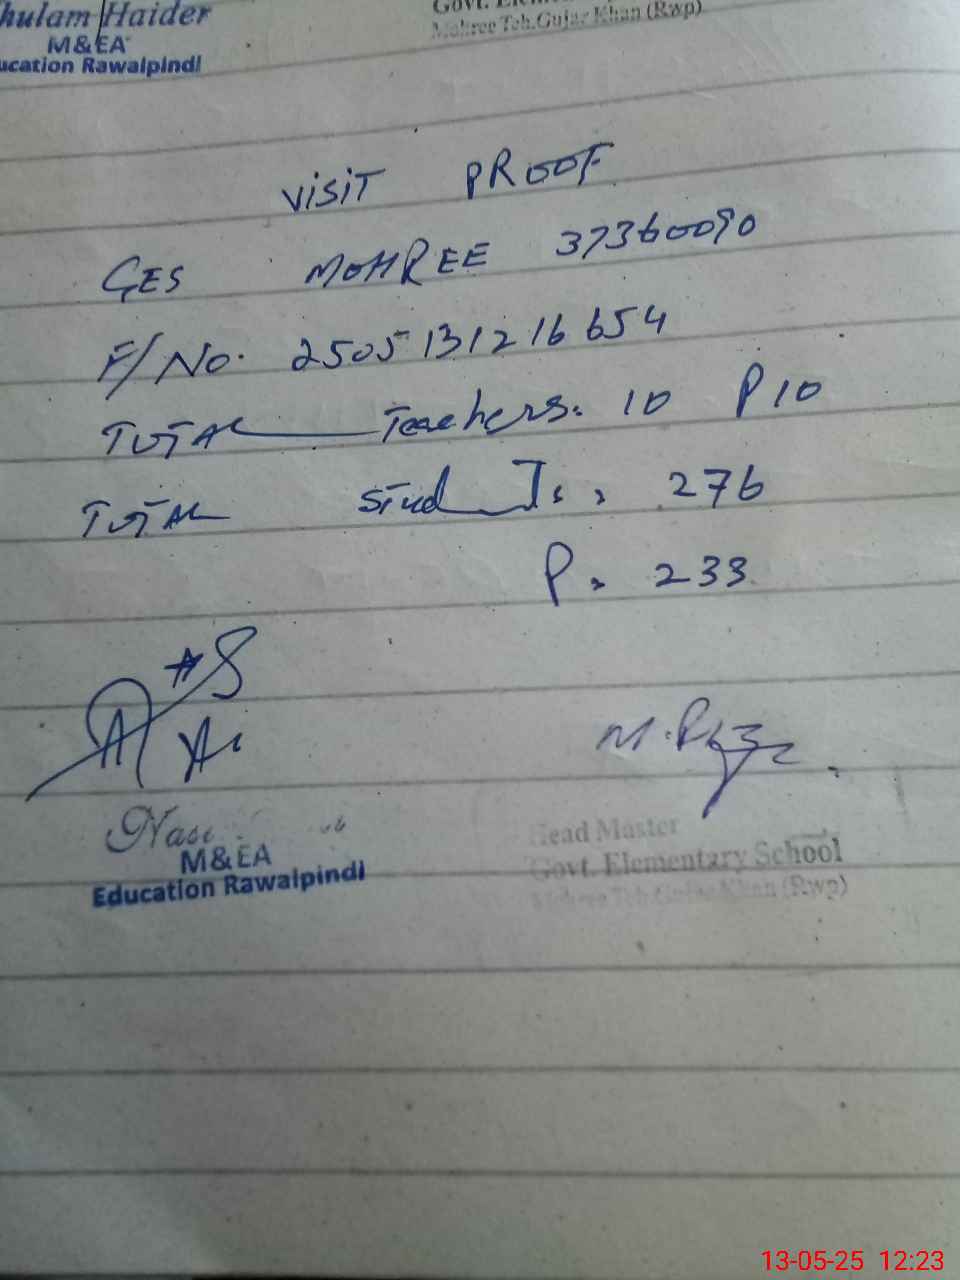 hulam Haider
M&EA
ucation Rawalpindi
Govt.
Mohree Teh.Gujar Khan (Rwp)
VISIT PROOF
GES MOHREE 37360090
F/No. 2505131216654
TOTAL Teachers. 10 P 10
TOTAL Students, 276
P. 233
M&EA
Education Rawalpindi
M.
Head Master
Govt. Elementary School
Mohree Teh.Gujar Khan (Rwp)
13-05-25 12:23